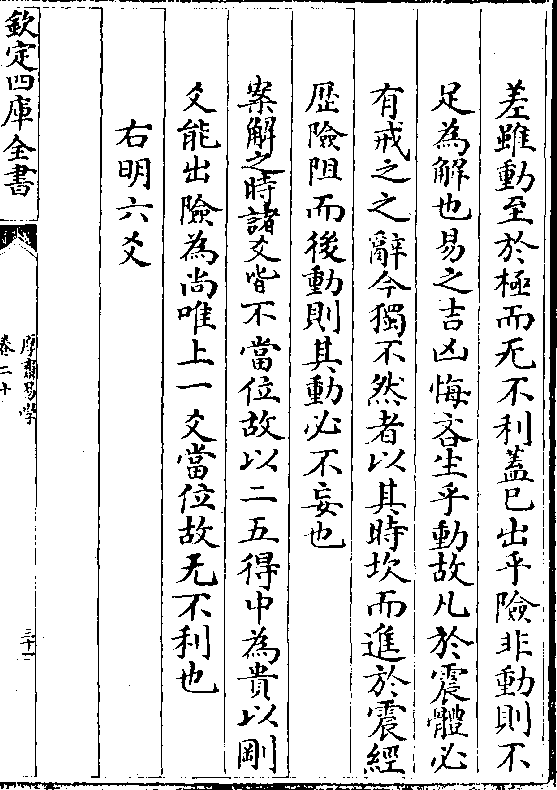 差雖動至於極而无不利蓋已出乎險非動則不
足為解也易之吉凶悔吝生乎動故凡於震體必
有戒之之辭今獨不然者以其時坎而進於震經
歴險阻而後動則其動必不妄也
案解之時諸爻皆不當位故以二五得中為貴以剛
爻能出險為尚唯上一爻當位故无不利也
右明六爻
欽定四庫全書
厚齋易學
卷二十
三十二